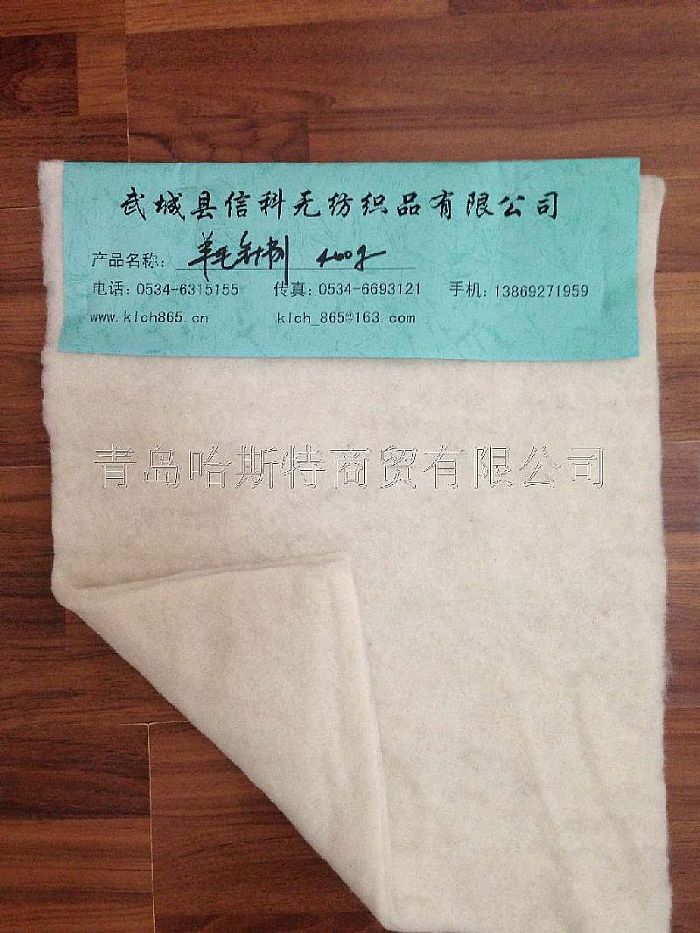 武城县信科无纺织品有限公司
产品名称: 羊毛针刺 400g
电话: 0534-6315155 传真: 0534-6693121 手机: 13869271959
www.klch865.cn klch_865@163.com
青岛哈斯特商贸有限公司